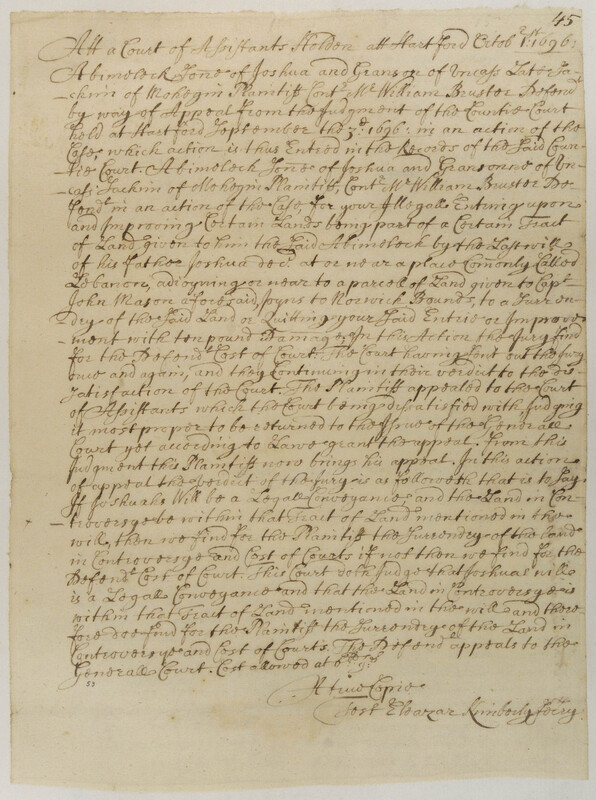 45
Att a Court of Assistants Holden att Hartford Octobr 1st 1696:
Abimeleck Sone of Joshua and Granson of Uncass Late Sa-
-chim of Mohegin Plaintiff Contr Mr William Bruster Defendt
by way of Appeal from the Judgment of the Countie Court
held at Hartford September the 3d: 1696: in an action of the
Case, which action is thus Entred in the Records of the said Coun-
-tie Court. Abimeleck Sone of Joshua and Gransonne of Un-
-cass Sachim of Mohegin Plaintiff, Contr Mr William Bruster De-
fendt in an action of the Case for your Illegall Entring upon
and Improving Certain Lands being part of a Certain Tract
of Land given to him the said Abimeleck by the Last will
of his father Joshua decd at or near a place Comonly Called
Lebanon, adioyning or near to a parcell of Land given to Capt
John Mason aforesaid, Joyns to Norwich Bounds, to a Surren-
dry of the said Land or Quitting your said Entrie or Improve-
-ment with ten pound Damage: In this Action the Jury find
for the Defendt Cost of Court. The Court having sent out the Jury
once and again, and they Continuing in their verdict to the dis-
satisfaction of the Court. The Plaintiff appealed to the Court
of Assistants which the Court being dissatisfied with, Judging
it most proper to be returned to the Issue of the Generall
Court yet according to Lawe grant the appeal. From this
Judgment this Plaintiff now brings his appeal. In this action
of appeal the verdict of the jury is as followeth that is to say
If Joshuahs Will be a Legall Conveyance and the Land in Con-
-troversye be within that Tract of Land mentioned in the
will, then we find for the Plaintiff the Surrendry of the land
in Controversye and Cost of Courts if not then we find for the
Defendt Cost of Court. This Court doth Judge that Joshuas will
is a Legall Conveyance and that the Land in Controversye is
within that Tract of Land mentioned in the will and there-
fore doe find for the Plaintiff the Surrendry of the Land in
Controversye and Cost of Courts. The Defendt appeals to the
Generall Court. Cost allowed at
A true Copie
Test Eleazar Kimberly Secry